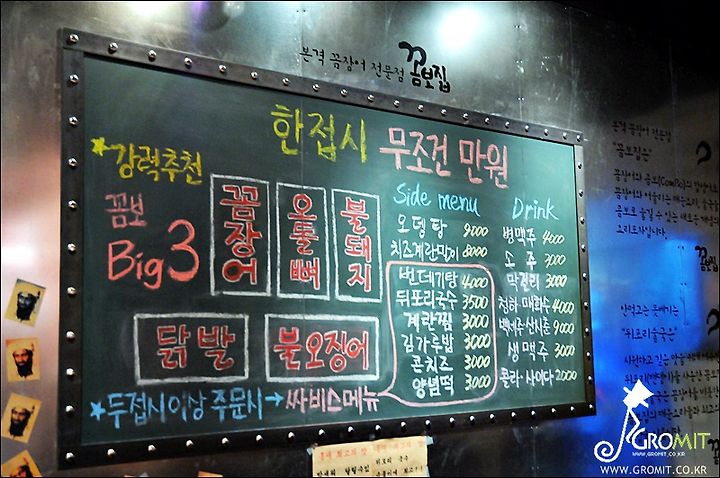 본격 꼼장어 전문점 꼼보집
한접시 무조건 만원
*강력추천
꼼보
Big 3
꼼장어
오돌뼈
불돼지
닭발
불오징어
Side menu
오뎅탕 9000
치즈계란말이 8000
번데기탕 4000
뒤포리국수 3500
계란찜 3000
김가루밥 3000
콘치즈 3000
양념떡 3000
Drink
병맥주 4000
소주 3000
막걸리 3000
청하 매화수 4000
백세주 산사춘 9000
생맥주 3000
콜라·사이다 2000
★두접시이상 주문시→싸비스메뉴
본격 꼼장어 전문점
"꼼보집은"
꼼보집
"뒤포리국수은"
GROMIT
WWW.GROMIT.CO.KR
WWW.GROMIT.CO.KR